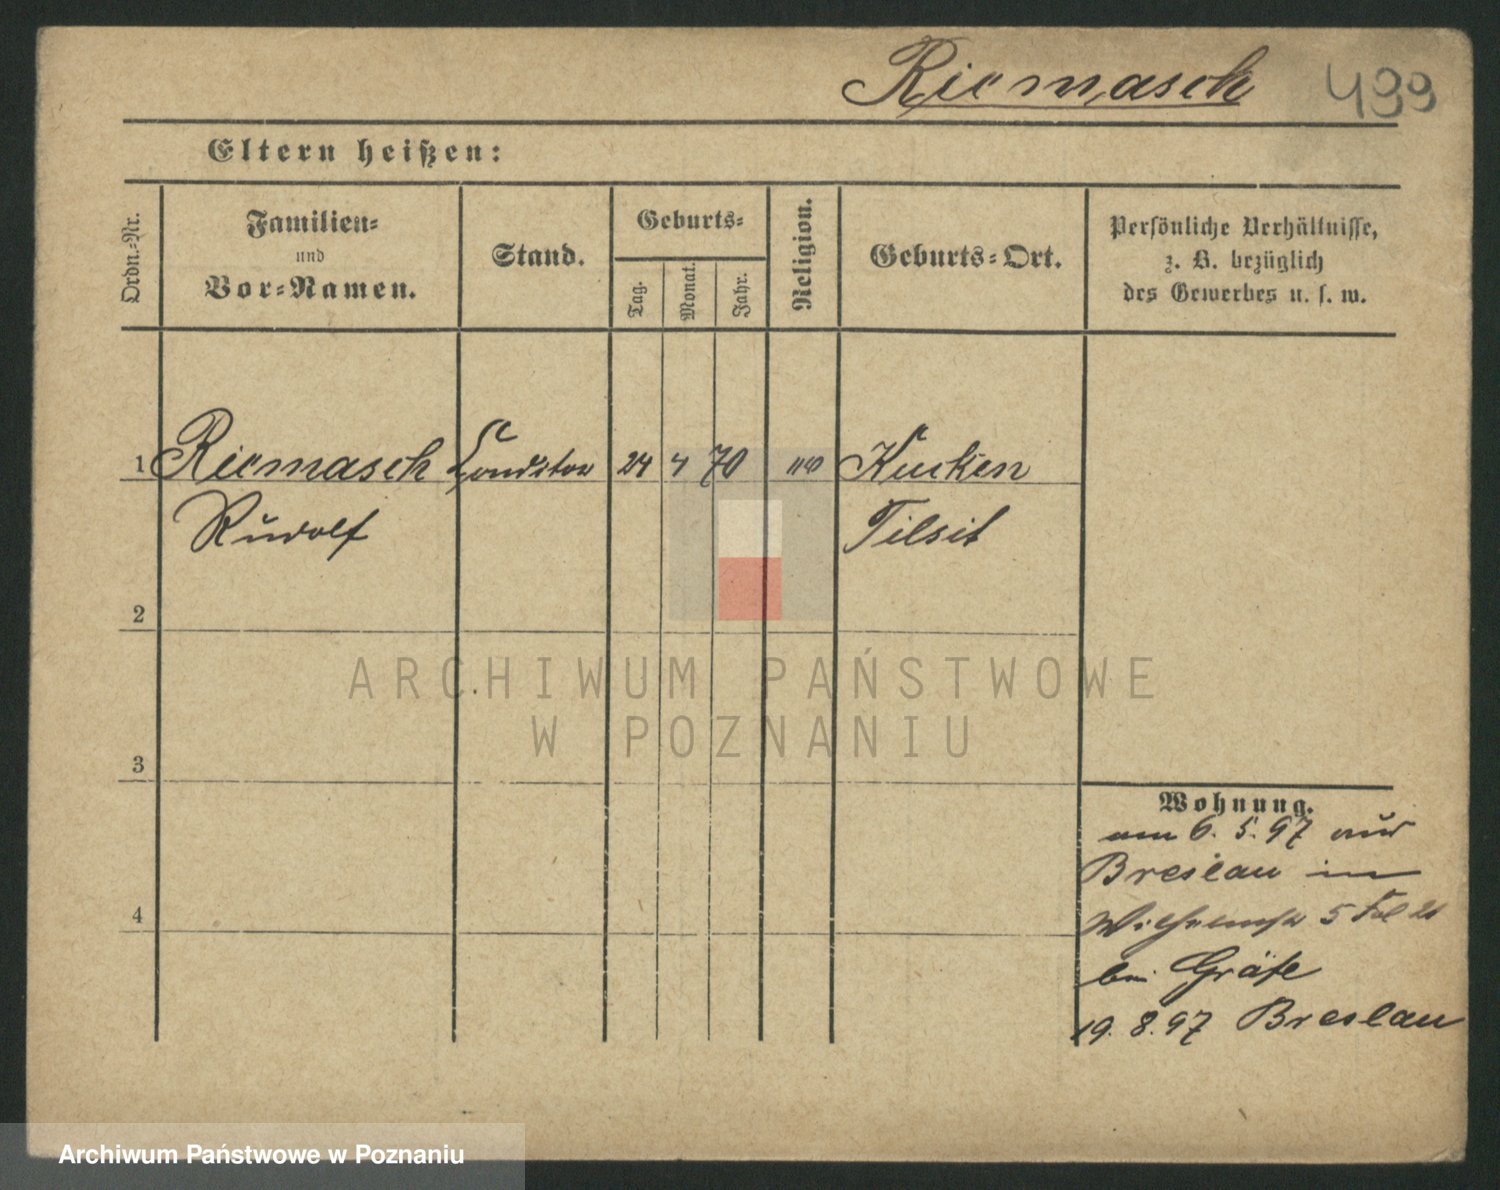 Riemasch 499
Eltern heißen:
Ordn.-Nr.
Familien-
und
Vor-Namen.
Stand.
Geburts-
Tag.
Monat.
Jahr.
Religion.
Geburts-Ort.
Persönliche Verhältnisse,
z. B. bezüglich
des Gewerbes u. s. w.
1 Riemasch Conditor 24 4 70 Kucken
Rudolf Tilsit
2
3
4
ARCHIWUM PAŃSTWOWE
W POZNANIU
Wohnung.
am 6. 5. 97 aus
Breslau in
Wilhelmstr 5
bei Gräfe
19. 8. 97 Breslau
Archiwum Państwowe w Poznaniu